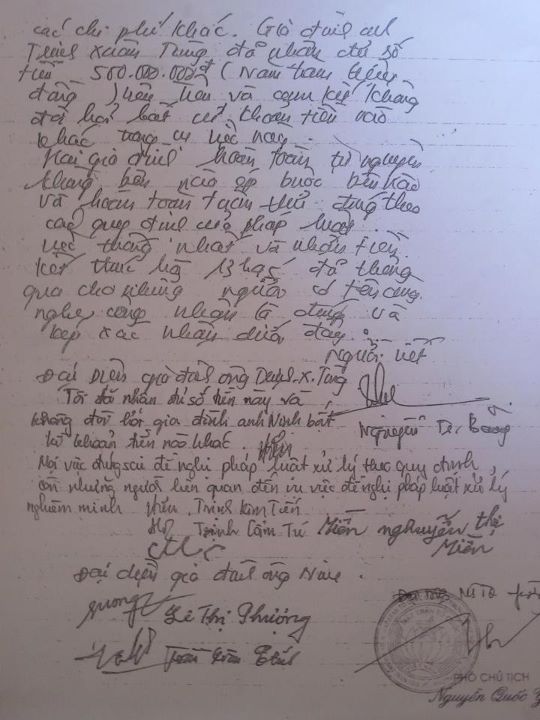 các chi phí khác. Gia đình anh
Trịnh Xuân Tùng đã nhận đủ số
tiền 500.000.000đ (Năm trăm triệu
đồng) nên và cam kết không
đòi hỏi bất cứ khoản tiền nào
khác trong vụ việc này.
Hai gia đình hoàn toàn tự nguyện
không bên nào ép buộc bên nào
và hoàn toàn tuân thủ đúng theo
các quy định của pháp luật.
việc thống nhất và nhận tiền
kết thúc hồi 13h45 đã thông
qua cho những người có tên cùng
nghe công nhận là đúng và
ký xác nhận dưới đây.
Người viết
Đại diện gia đình ông Trịnh. X. Tùng
Tôi đã nhận đủ số tiền này và
không đòi hỏi gia đình anh Ninh bất
kì khoản tiền nào khác.
Nguyễn
Mọi việc đúng sai đề nghị pháp luật xử lý theo quy định
còn những người liên quan đến vụ việc đề nghị pháp luật xử lý
nghiêm minh Trịnh Kim Tiến
Trịnh Cẩm Tú Miền nguyễn thị
Miền
Đại diện gia đình ông Ninh.
Lê Thị Phượng
PHÓ CHỦ TỊCH
Nguyễn Quốc